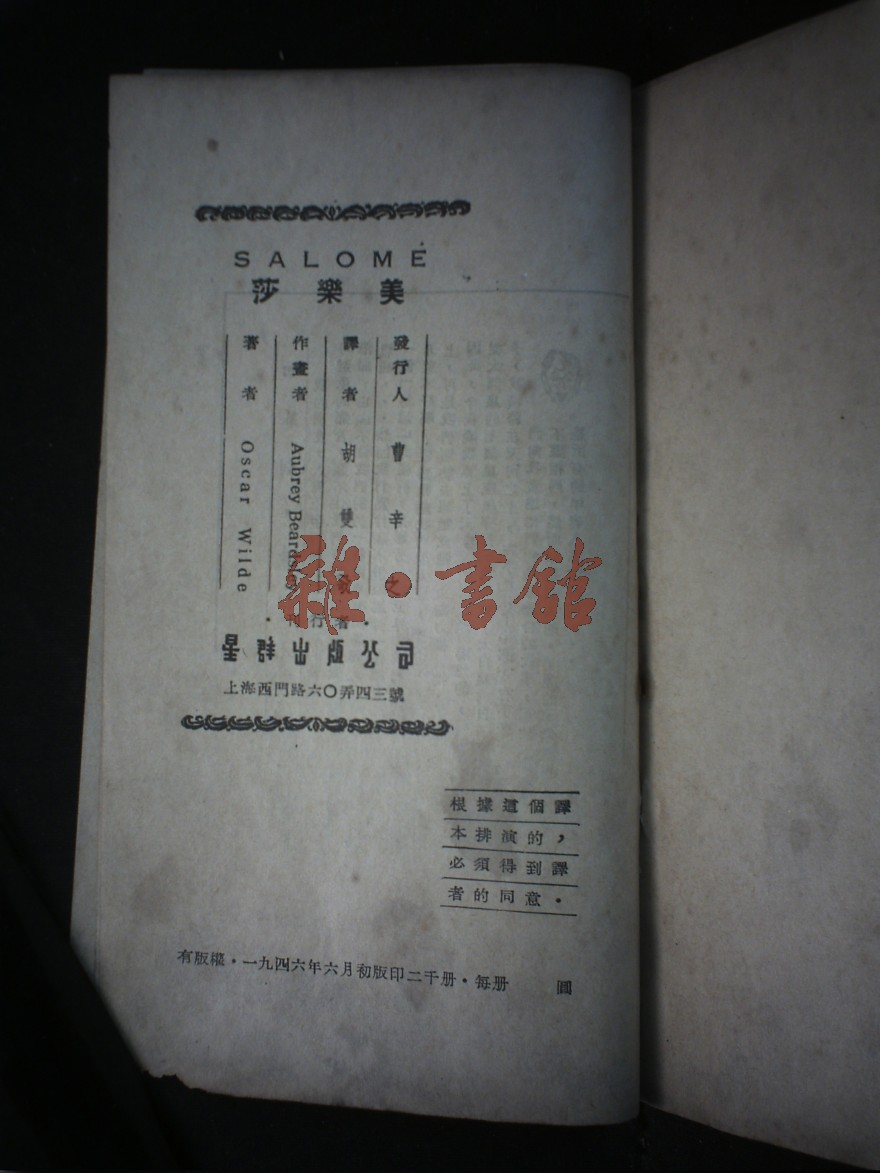 SALOMÉ
莎樂美
發行人 曹辛之
譯者 胡雙
作畫者 Aubrey Beardsley
著者 Oscar Wilde
·刊行者·
星群出版公司
上海西門路六〇弄四三號
雜·書館
根據這個譯
本排演的，
必須得到譯
者的同意·
有版權·一九四六年六月初版印二千册·每册 圓